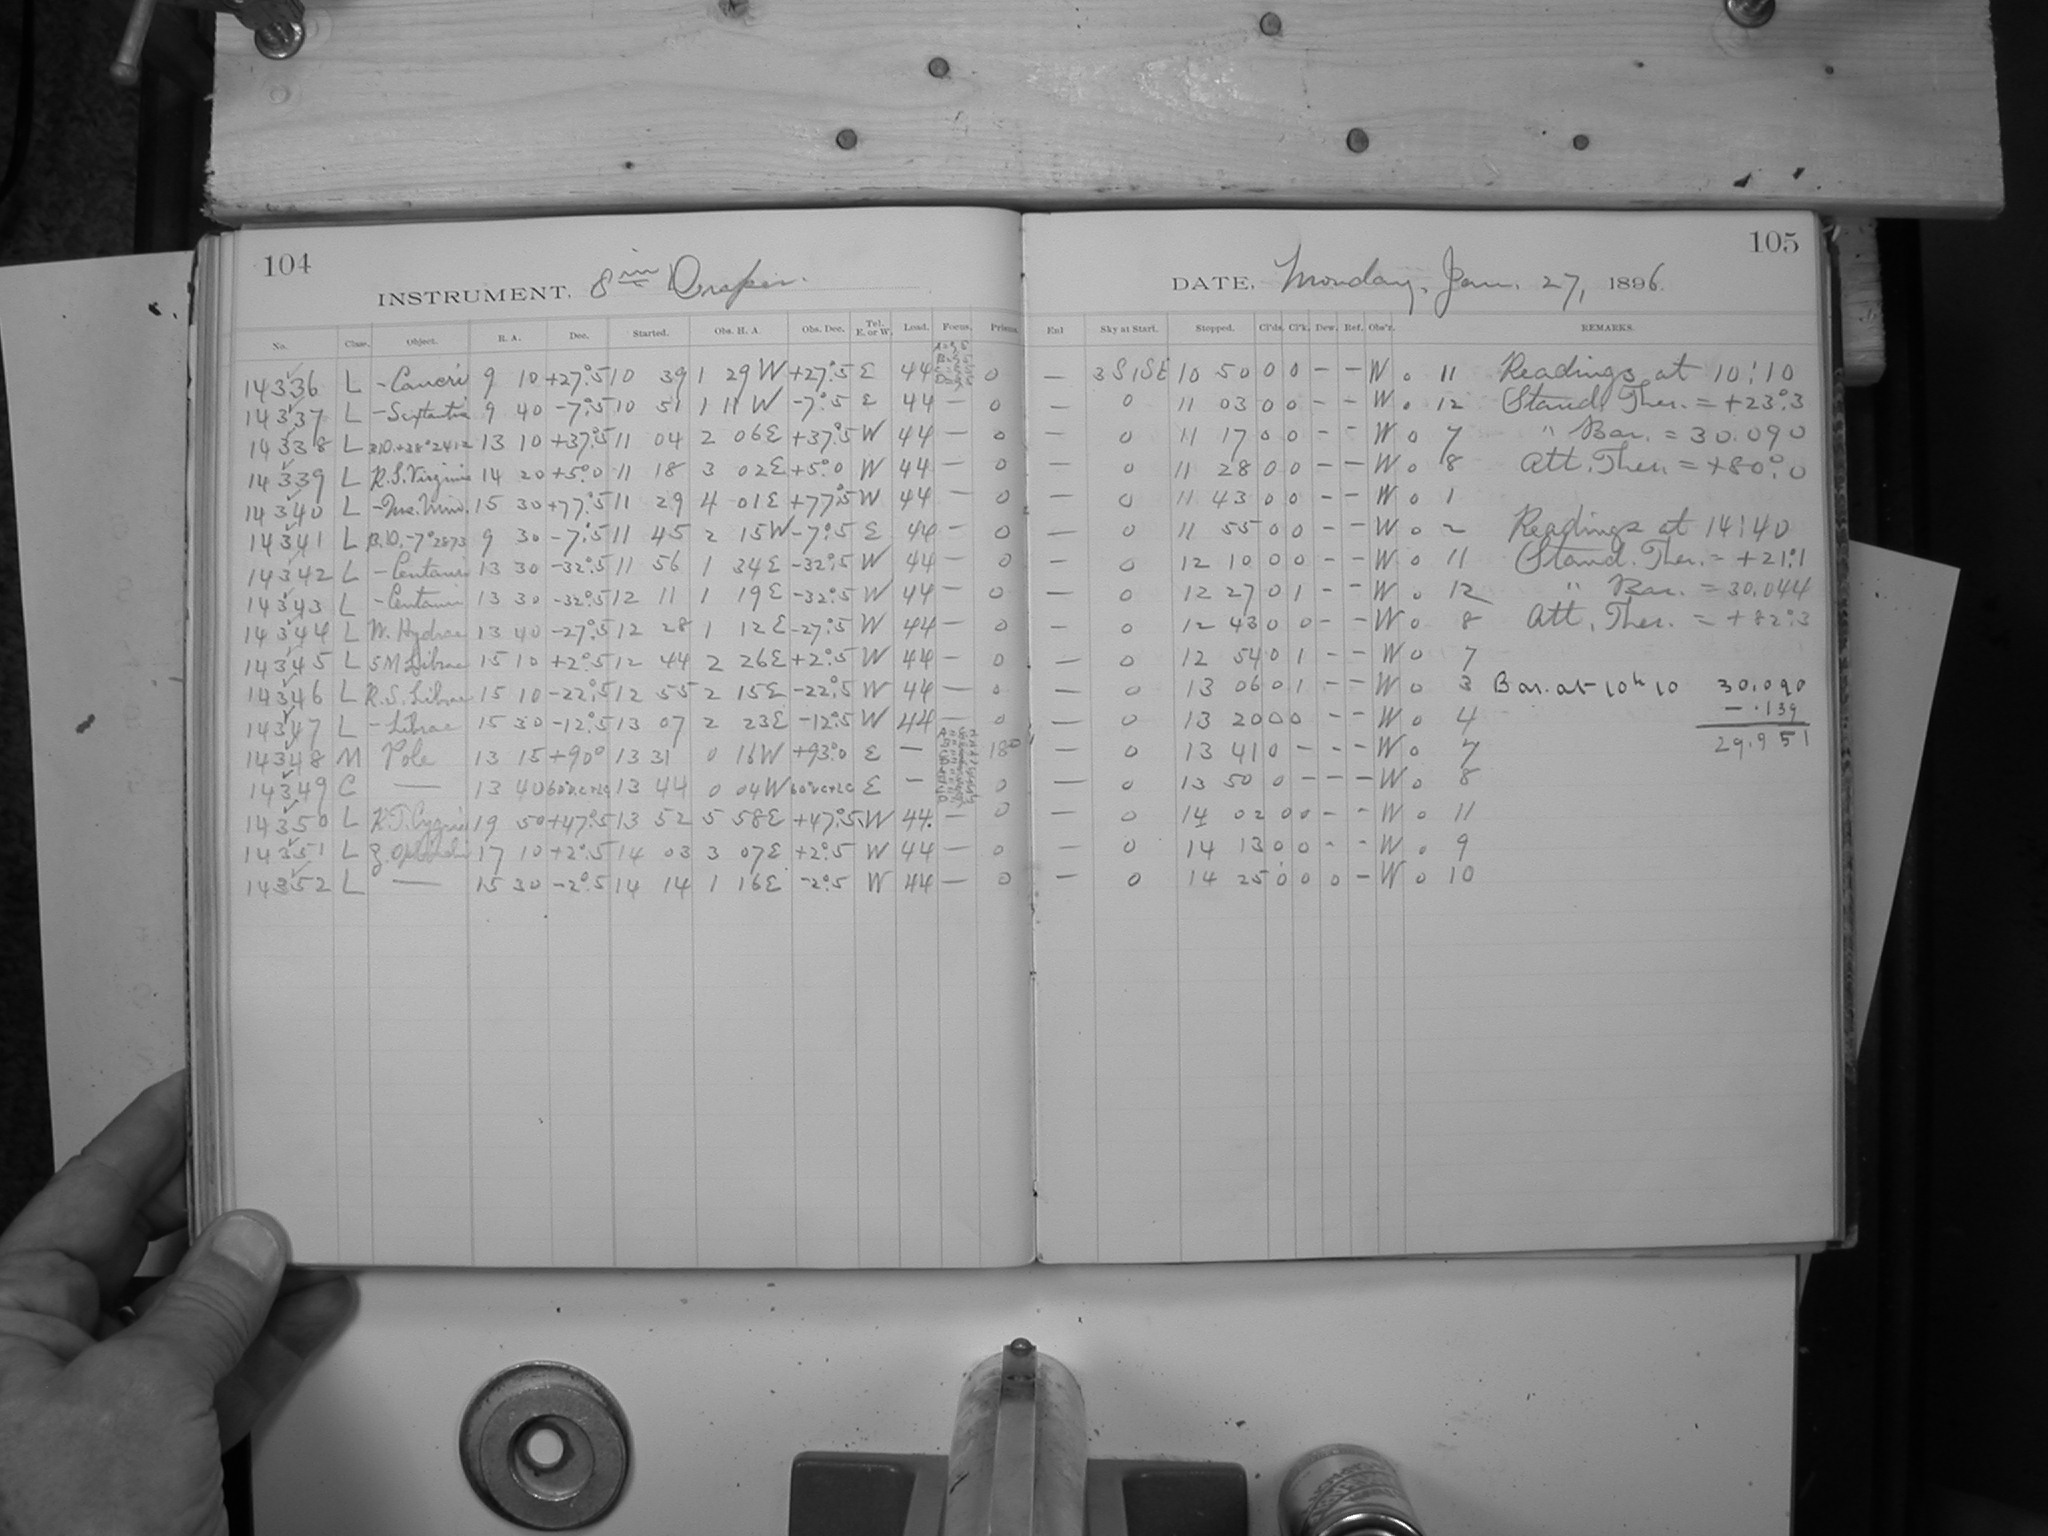 104
INSTRUMENT. 8 in Draper.
No. Class. Object. R. A. Dec. Started. Obs. H. A. Obs. Dec. Tel. E. or W. Load. Focus. Prisms.
14336 L -Cancri 9 10 +27°.5 10 39 1 29 W +27°.5 E 44 0
14337 L -Sextantis 9 40 -7°.5 10 51 1 11 W -7°.5 E 44 — 0
14338 L B.D.+38°2412 13 10 +37°.5 11 04 2 06 E +37°.5 W 44 — 0
14339 L R.S. Virginis 14 20 +5°.0 11 18 3 02 E +5°.0 W 44 — 0
14340 L -Urs. Min. 15 30 +77°.5 11 29 4 01 E +77°.5 W 44 — 0
14341 L B.D. -7°2873 9 30 -7°.5 11 45 2 15 W -7°.5 E 44 — 0
14342 L -Centauri 13 30 -32°.5 11 56 1 34 E -32°.5 W 44 — 0
14343 L -Centauri 13 30 -32°.5 12 11 1 19 E -32°.5 W 44 — 0
14344 L W. Hydrae 13 40 -27°.5 12 28 1 12 E -27°.5 W 44 — 0
14345 L 5M Librae 15 10 +2°.5 12 44 2 26 E +2°.5 W 44 — 0
14346 L R.S. Librae 15 10 -22°.5 12 55 2 15 E -22°.5 W 44 — 0
14347 L -Librae 15 30 -12°.5 13 07 2 23 E -12°.5 W 44 — 0
14348 M Pole 13 15 +90° 13 31 0 16 W +93°.0 E — 180
14349 C — 13 40 13 44 0 04 W E — 0
14350 L R.T. Cygni 19 50 +47°.5 13 52 5 58 E +47°.5 W 44. — 0
14351 L Z Ophiuchi 17 10 +2°.5 14 03 3 07 E +2°.5 W 44 — 0
14352 L — 15 30 -2°.5 14 14 1 16 E -2°.5 W 44 — 0
105
DATE. Monday, Jan. 27, 1896.
Enl Sky at Start. Stopped. Cl'ds. Cl'k. Dew. Ref. Obs'r. REMARKS.
— 3 S 1 SE 10 50 0 0 - - W 0 11 Readings at 10:10
— 0 11 03 0 0 - - W 0 12 Stand. Ther. = +23°.3
— 0 11 17 0 0 - - W 0 7 " Bar. = 30.090
— 0 11 28 0 0 - - W 0 8 Att. Ther. = +80°.0
— 0 11 43 0 0 - - W 0 1
— 0 11 55 0 0 - - W 0 2 Readings at 14:40
— 0 12 10 0 0 - - W 0 11 Stand. Ther. = +21°.1
— 0 12 27 0 1 - - W 0 12 " Bar. = 30.044
— 0 12 43 0 0 - - W 0 8 Att. Ther. = +82°.3
— 0 12 54 0 1 - - W 0 7
— 0 13 06 0 1 - - W 0 3 Bar. at 10h 10 30.090
— 0 13 20 0 0 - - W 0 4 - .139
— 0 13 41 0 - - - W 0 7 29.951
— 0 13 50 0 - - - W 0 8
— 0 14 02 0 0 - - W 0 11
— 0 14 13 0 0 - - W 0 9
— 0 14 25 0 0 0 - W 0 10